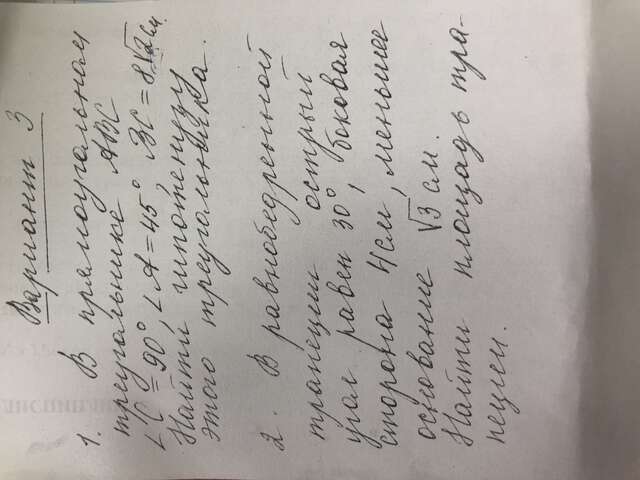 Вариант 3
1. В прямоугольном
треугольнике ABC
∠C = 90°, ∠A = 45°, BC = 8√2 см.
Найти гипотенузу
этого треугольника.
2. В равнобедренной
трапеции острый
угол равен 30°, боковая
сторона 4см, меньшее
основание √3 см.
Найти площадь тра-
пеции.